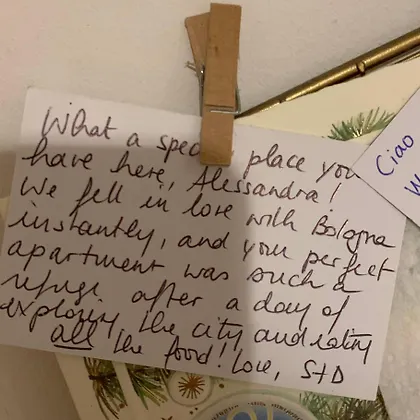 What a spec place you
have here, Alessandra!
We fell in love with Bologna
instantly, and your perfect
apartment was such a
refuge after a day of
exploring the city and eating
all the food! Love, S+D
Ciao
W